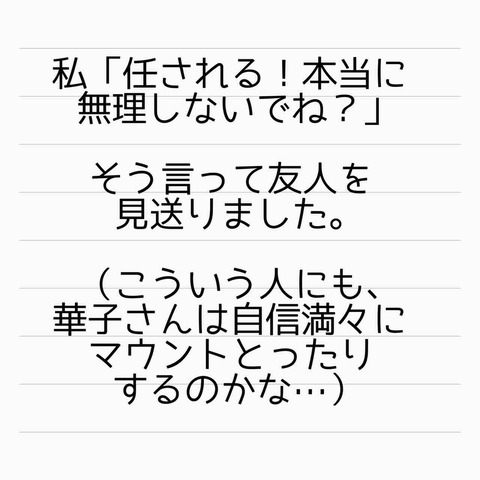 私「任される！本当に
無理しないでね？」
そう言って友人を
見送りました。
（こういう人にも、
華子さんは自信満々に
マウントとったり
するのかな…）